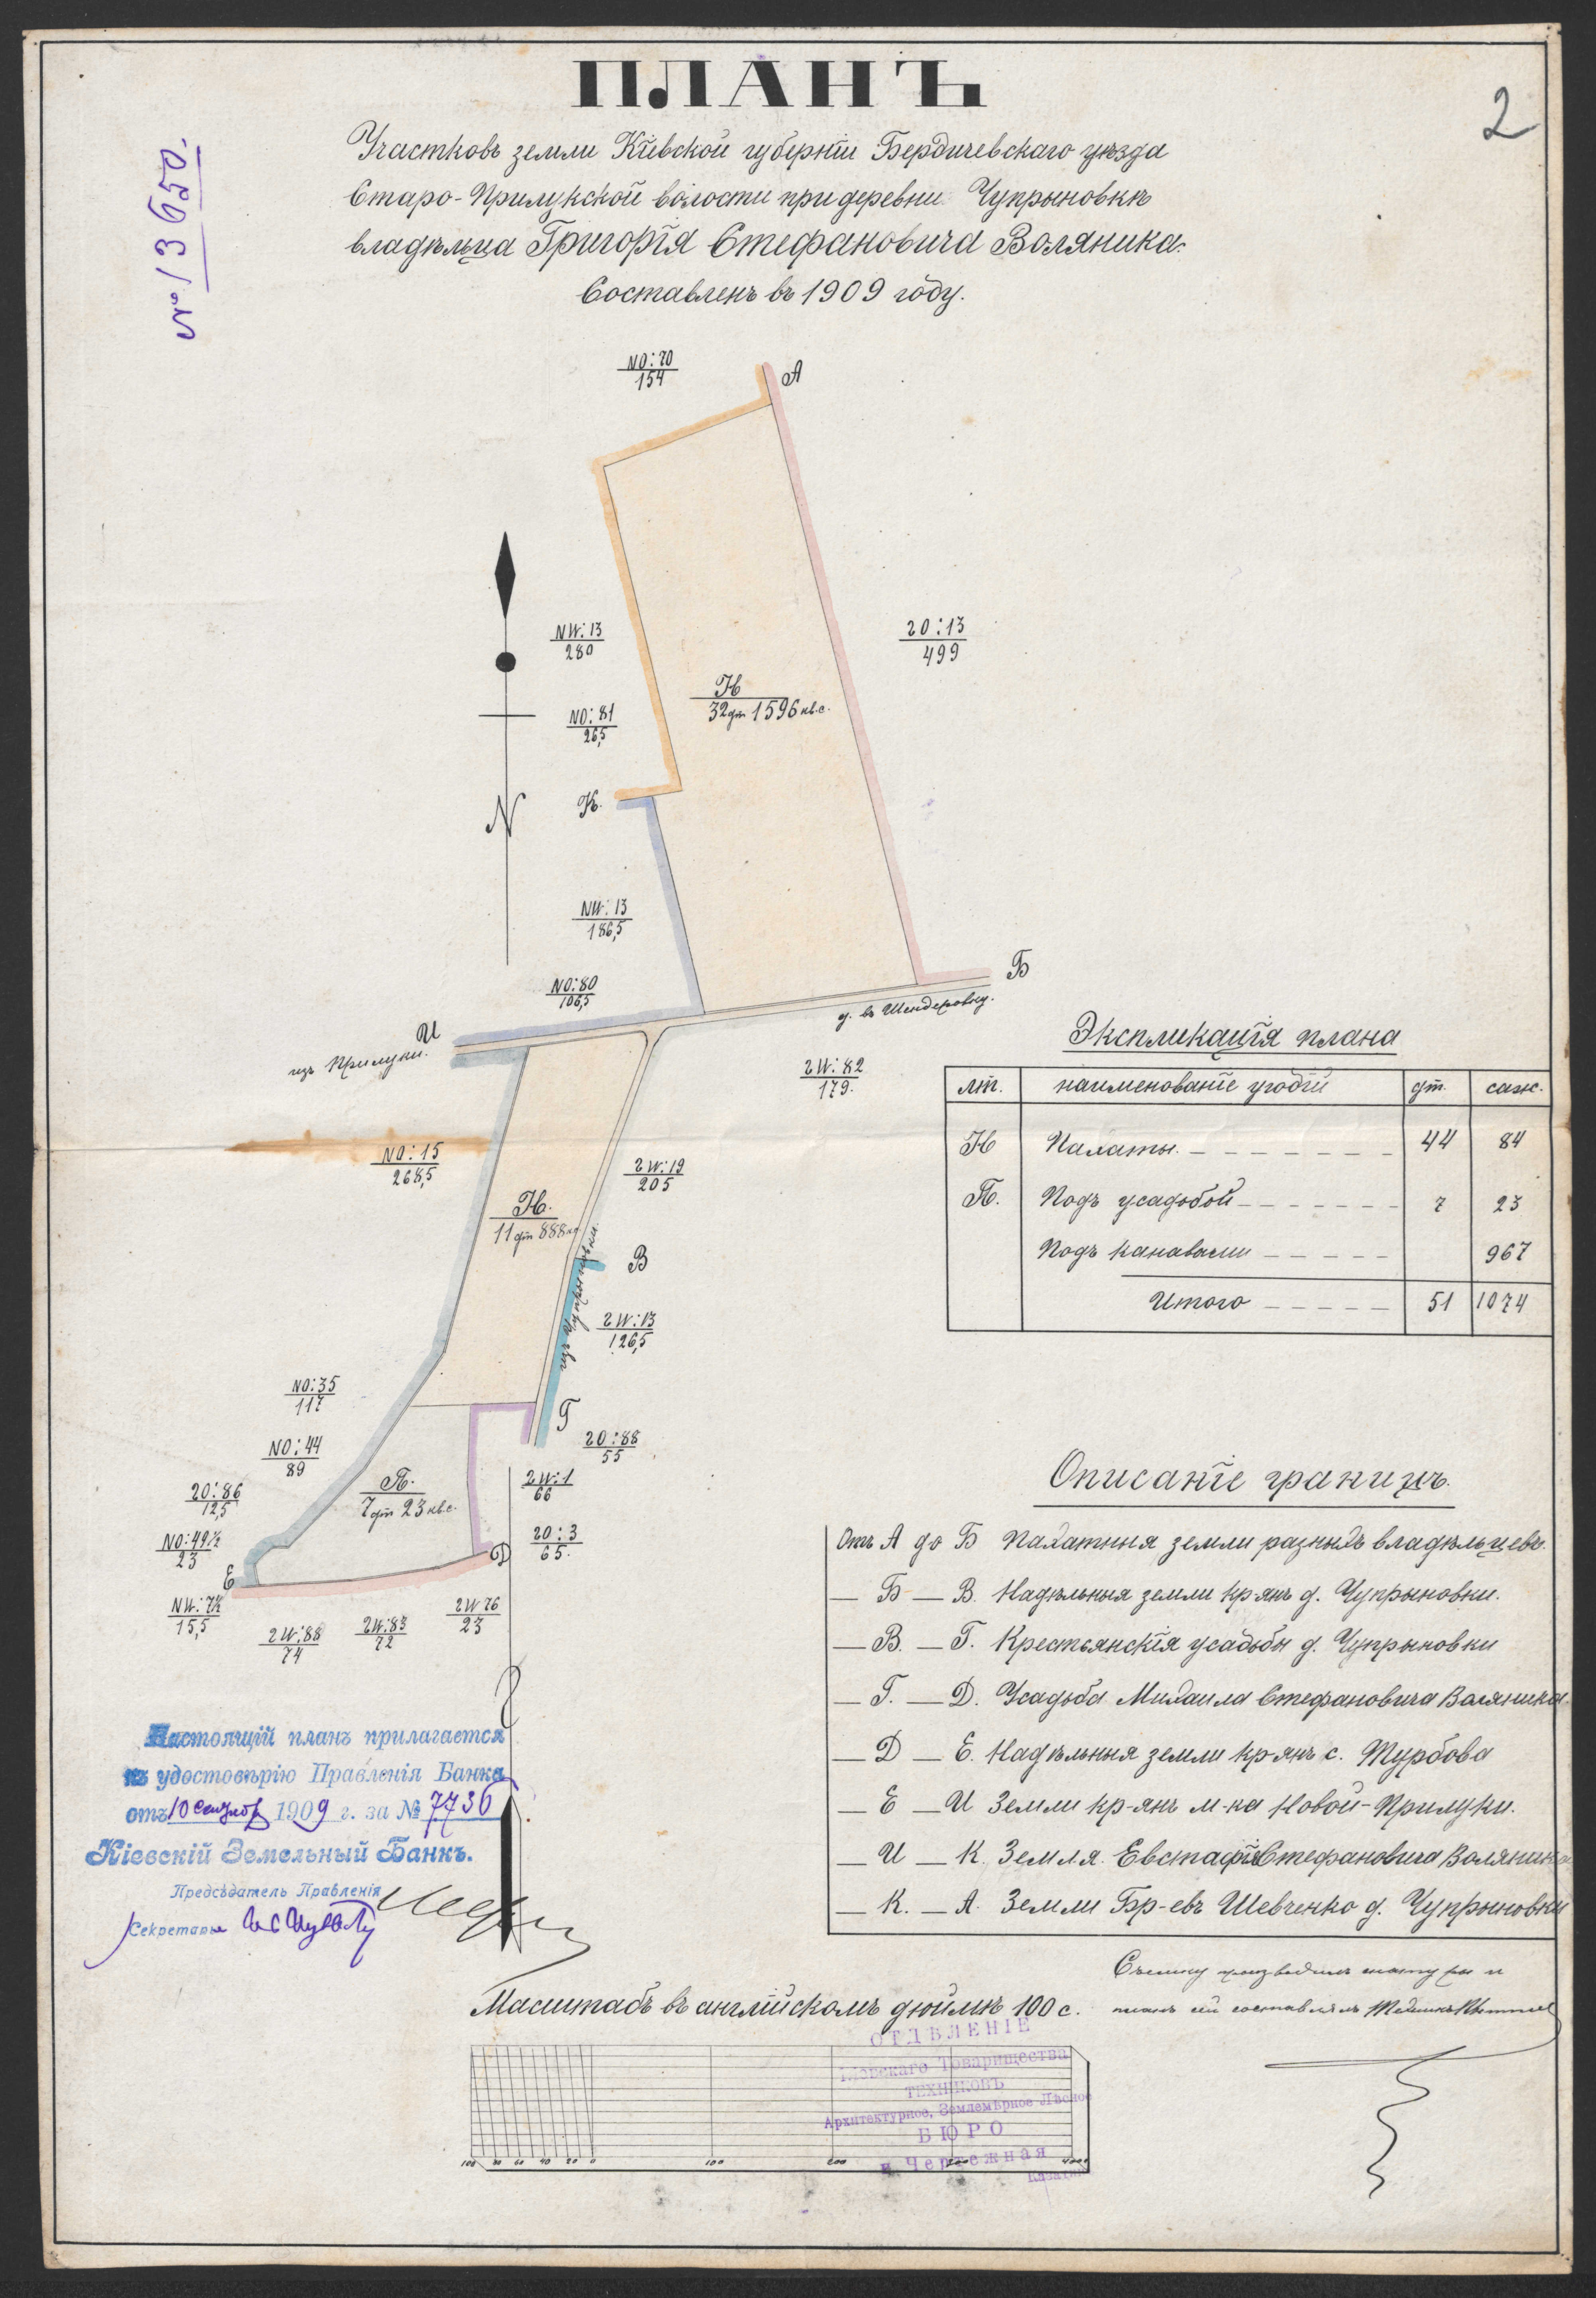 ПЛАНЪ
2
№ 13650.
Участковъ земли Кіевской губерніи Бердичевскаго уѣзда
Старо-Прилукской волости при деревни Чупрыновкѣ
владѣльца Григорія Стефановича Воляника.
Составленъ въ 1909 году.
NO: 70
154
А
NW: 13
280
20: 13
499
Н
32 дт 1596 кв.с.
NO: 81
26,5
К.
N
NW: 13
186,5
Б
NO: 80
106,5
д. въ Шендеровку.
И
изъ Прилуки.
2W: 82
179.
NO: 15
268,5
2W: 19
205
Н.
11 дт 888 кв
В
2W: 13
126,5
NO: 35
117
Г
20: 88
55
NO: 44
89
2W: 1
66
П.
7 дт 23 кв.с.
20: 86
12,5
20: 3
65.
NO: 49½
23
Д
Е
NW: 7½
15,5
2W: 88
74
2W: 83
72
2W 76
23
Экспликація плана
лт. наименованіе угодій дт. саж.
Н Пахаты. 44 84
П. Подъ усадьбой 7 23
Подъ канавами 967
Итого 51 1074
Описаніе границъ.
Отъ А до Б Пахатныя земли разныхъ владѣльцевъ.
— Б — В. Надѣльныя земли кр-янъ д. Чупрыновки.
— В. — Г. Крестьянскія усадьбы д. Чупрыновки
— Г. — Д. Усадьба Михаила Стефановича Воляника.
— Д — Е. Надѣльныя земли кр-янъ с. Турбова
— Е — И Земли кр-янъ м-ка Новой-Прилуки.
— И — К. Земля Евстафія Стефановича Воляника
— К. — А. Земли Бр-евъ Шевченко д. Чупрыновки
Настоящій планъ прилагается
къ удостовѣрію Правленія Банка
отъ 10 Сентября 1909 г. за № 7730
Кіевскій Земельный Банкъ.
Предсѣдатель Правленія
Секретарь
Съемку производилъ натуры и
планъ сей составлялъ
Масштабъ въ англійскомъ дюймѣ 100 с.
ОТДѢЛЕНІЕ
Кіевскаго Товарищества
ТЕХНИКОВЪ
Архитектурное, Землемѣрное Лѣсное
БЮРО
и Чертежная
100 80 60 40 20 0 100 200 300 400